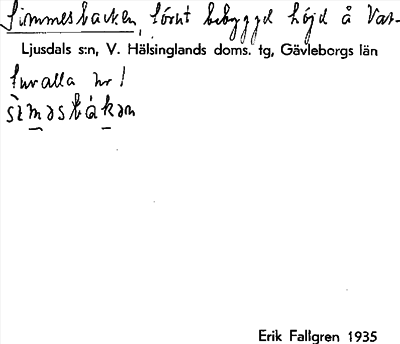 Simmesbacken, förut bebyggd höjd å Vat-
Ljusdals s:n, V. Hälsinglands doms. tg, Gävleborgs län
tuvalla nr 1
Erik Fallgren 1935